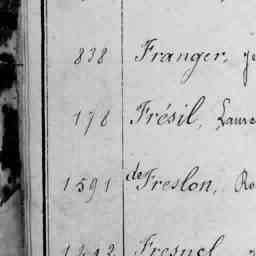 838 Franger, je
178 Frésil, Laure
1591 de Freslon, Ro
1212 Fresnel